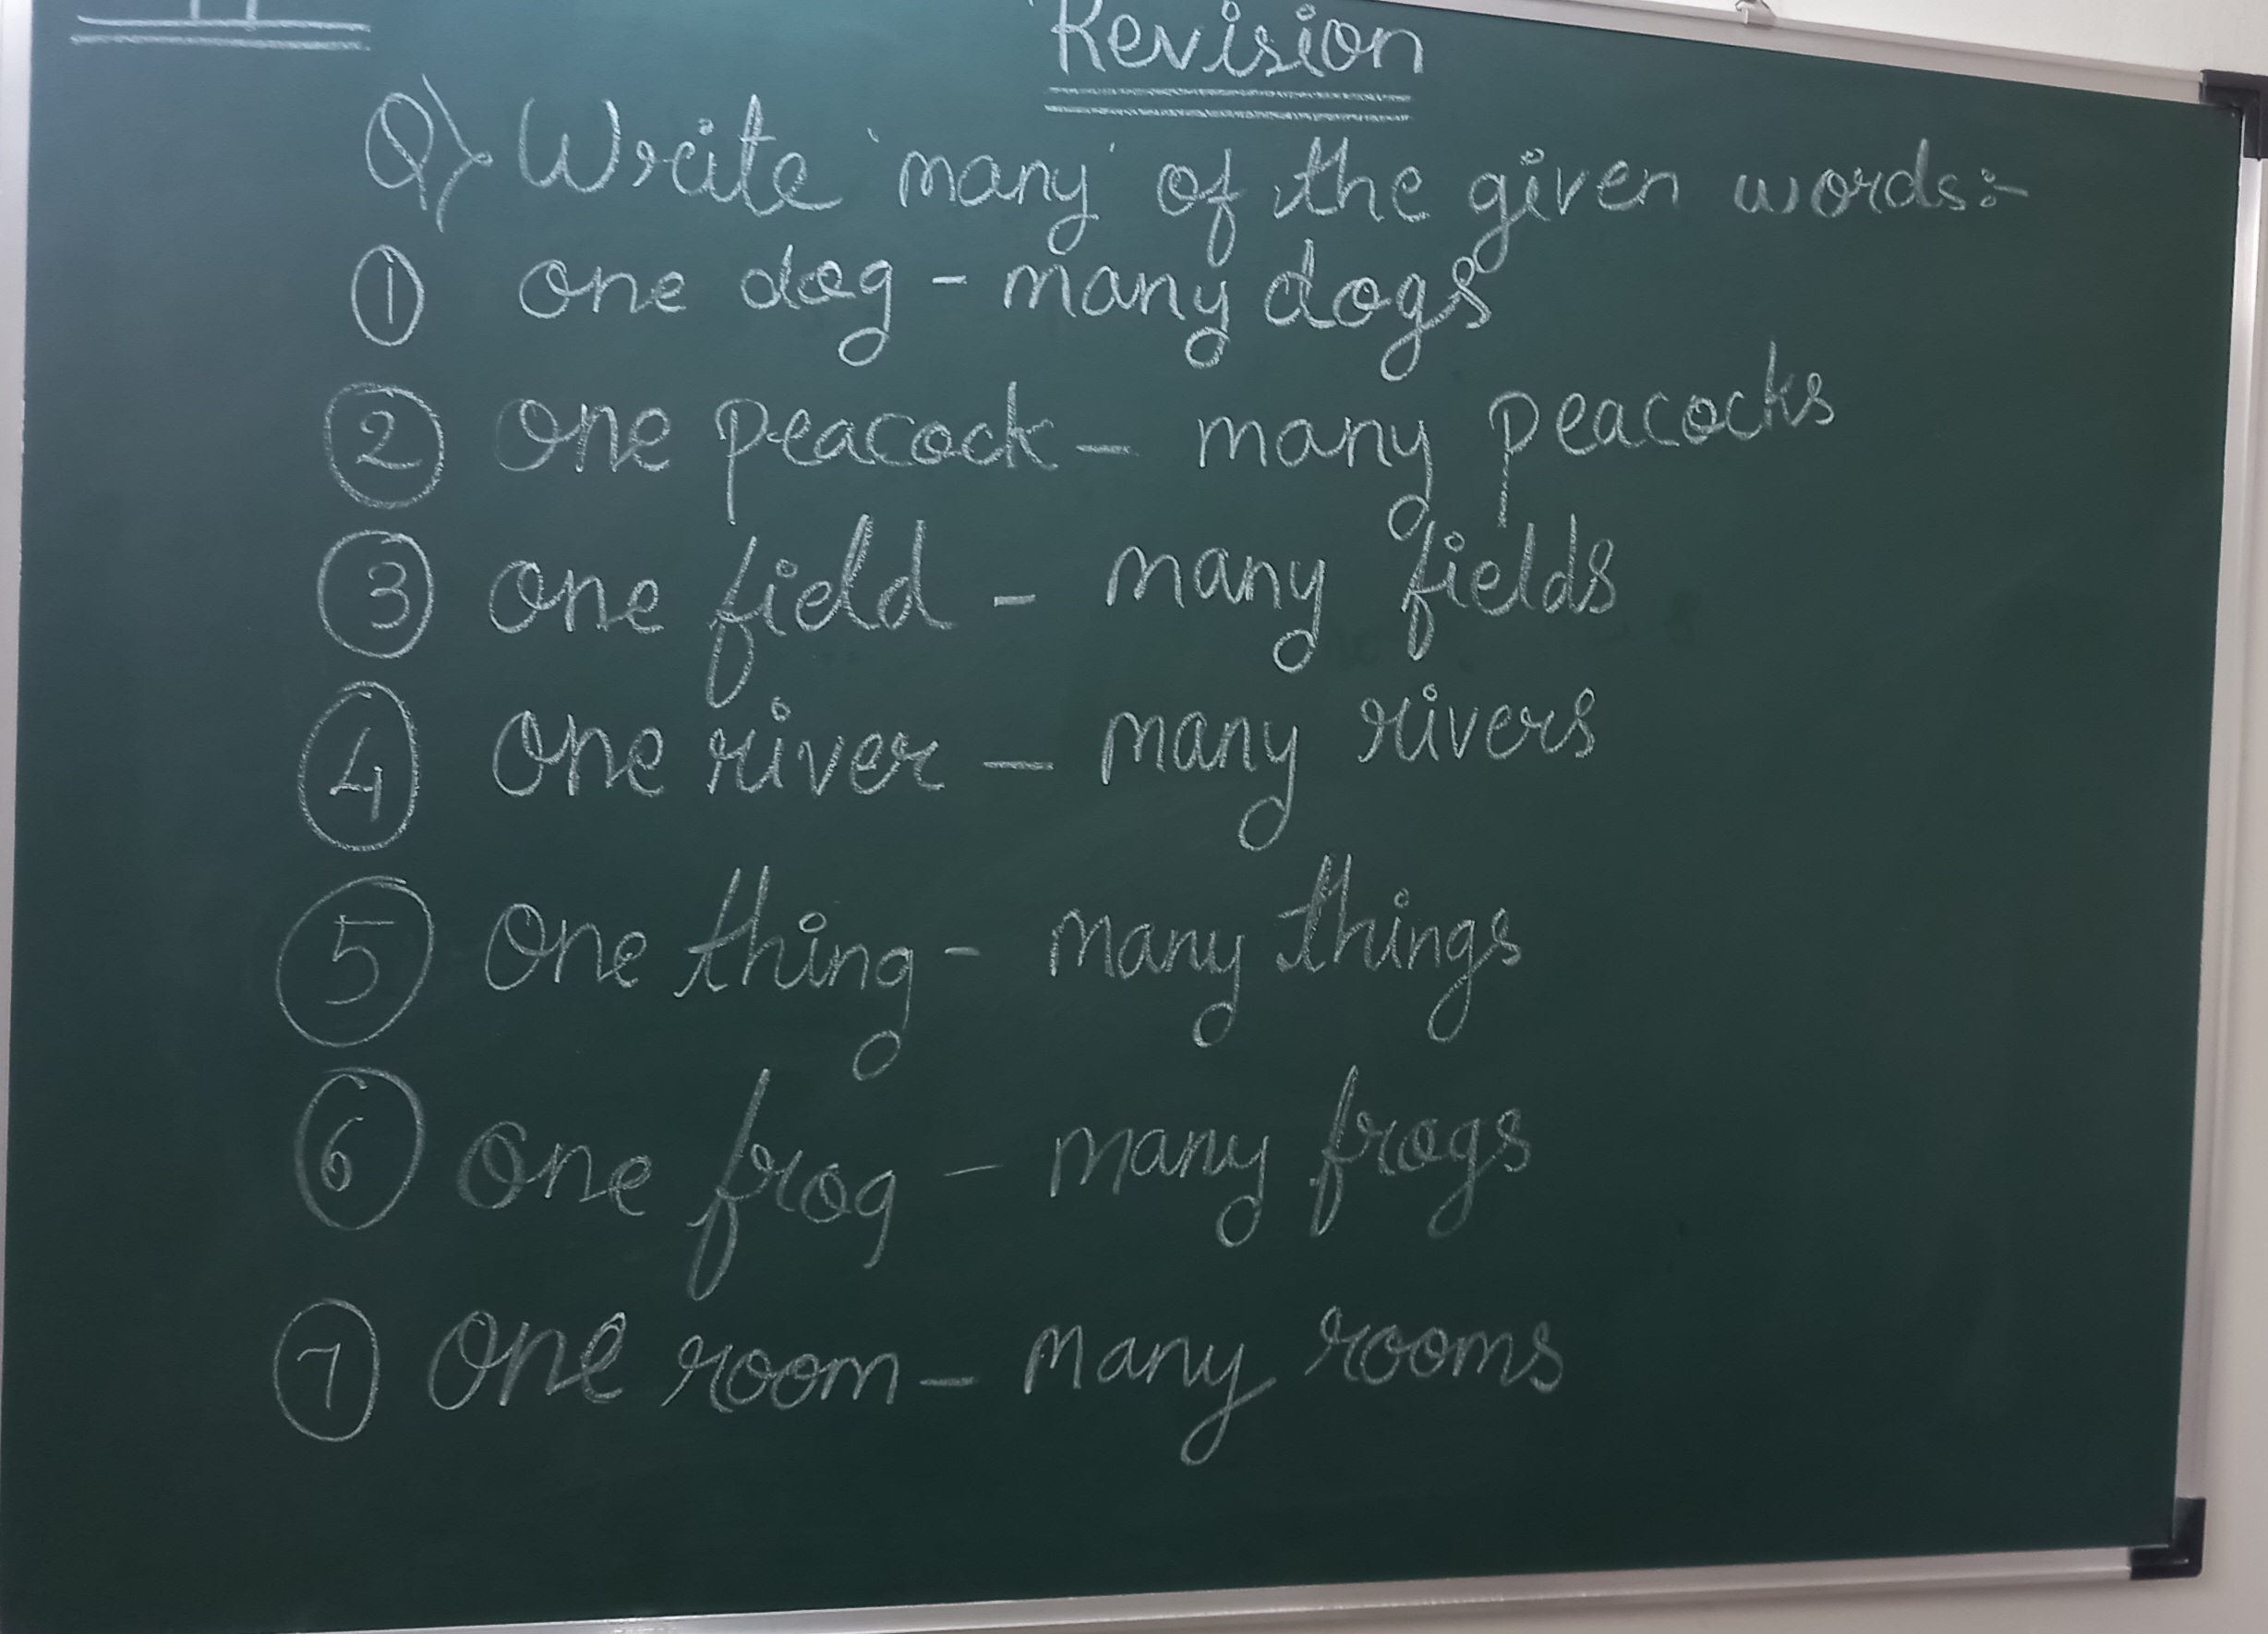 Revision
Q) Write 'many' of the given words:-
① one dog - many dogs
② one peacock - many peacocks
③ one field - many fields
④ one river - many rivers
⑤ one thing - many things
⑥ one frog - many frogs
⑦ one room - many rooms